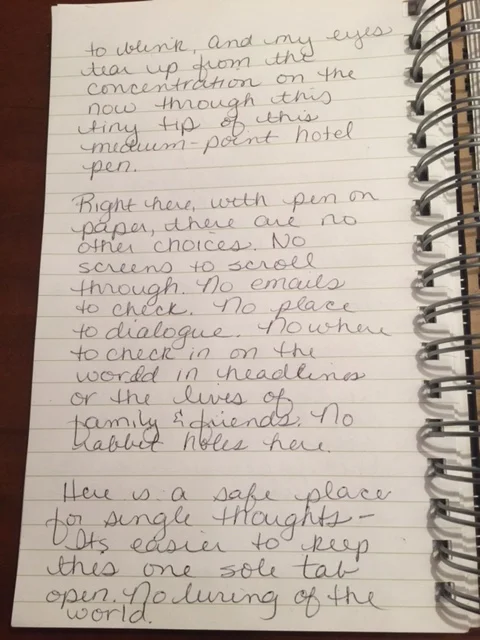 to blink, and my eyes
tear up from the
concentration on the
now through this
tiny tip of this
medium-point hotel
pen.
Right here, with pen on
paper, there are no
other choices. No
screens to scroll
through. No emails
to check. No place
to dialogue. Nowhere
to check in on the
world in headlines
or the lives of
family & friends. No
rabbit holes here.
Here is a safe place
for single thoughts -
Its easier to keep
this one sole tab
open. No luring of the
world.